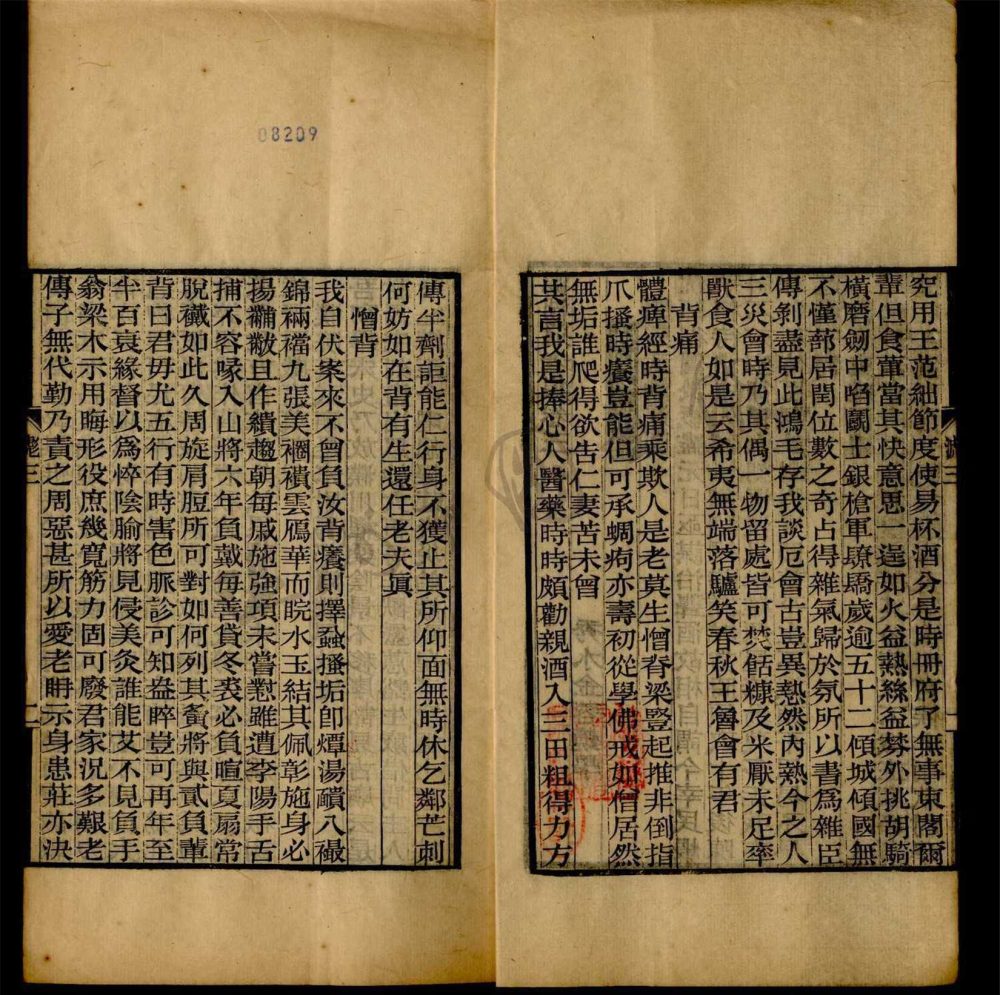 究用王范絀節度使易杯酒分是時冊府了無事東閣爾
輩但食葷當其快意思一逞如火益熱絲益棼外挑胡騎
橫磨劒中啗鬬士銀槍軍驕歲逾五十二傾城傾國無
不僅蔀居閏位數之奇占得雜氣歸於氛所以書為雜臣
傳剝盡見此鴻毛存我談厄會古豈異熱然內熱今之人
三災會時乃其偶一物留處皆可焚餂糠及米厭未足率
獸食人如是云希夷無端落驢笑春秋王魯會有君
背痛
體痺經時背痛乘欺人是老莫生憎脊梁豎起推非倒指
爪搔時癢豈能但可承蜩痀亦壽初從學佛戒如僧居然
無垢誰爬得欲告仁妻苦未曾
其言我是捧心人醫藥時時頗勸親酒入三田粗得力方
傳半劑詎能仁行身不獲止其所仰面無時休乞鄰芒刺
何妨如在背有生還任老夫眞
憎背
我自伏案來不曾負汝背癢則擇蝨搔垢卽燂湯靧八襊
錦裲襠九張美襉襀雲鴈華而睆水玉結其佩彰施身必
揚黼黻且作繢趨朝每戚施強項未嘗懟雖遭李陽手舌
捕不容喙入山將六年負戴每善貸冬裘必負暄夏扇常
脫襶如此久周旋肩脰所可對如何列其夤將與貳負輩
背曰君毋尤五行有時害色脈診可知盎睟豈可再年至
半百衰緣督以爲悴陰腧將見侵美灸誰能艾不見負手
翁梁木示用晦形役庶幾寬筋力固可廢君家況多艱老
傳子無代勤乃責之周惡甚所以愛老聃示身患莊亦決
08209